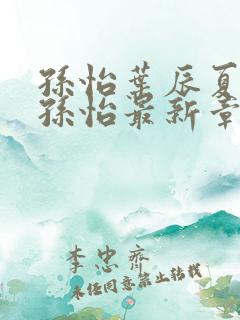 孫怡葉辰夏
孫怡最新章
李忠齊
未經同意禁止轉載